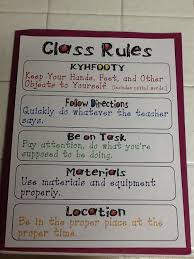 Class Rules
KYHFOOTY
Keep Your Hands, Feet, and Other
Objects to Yourself (includes unkind words)
Follow Directions
Quickly do whatever the teacher
says.
Be on Task
Pay attention, do what you're
supposed to be doing.
Materials
Use materials and equipment
properly.
Location
Be in the proper place at the
proper time.